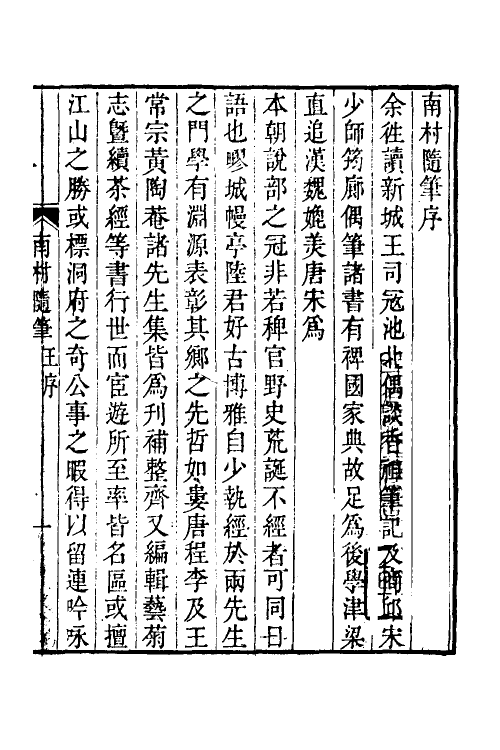 南村隨筆序
余徃讀新城王司冦池北偶談香祖筆記及商邱宋
少師筠廊偶筆諸書有裨國家典故足為後學津梁
直追漢魏媲美唐宋為
本朝說部之冠非若稗官野史荒誕不經者可同日
語也嘐城幔亭陸君好古博雅自少執經於兩先生
之門學有淵源表彰其鄉之先哲如婁唐程李及王
常宗黃陶菴諸先生集皆為刊補整齊又編輯藝菊
志曁續茶經等書行世而宦遊所至率皆名區或擅
江山之勝或標洞府之奇公事之暇得以留連吟咏
南村隨筆 王序 一